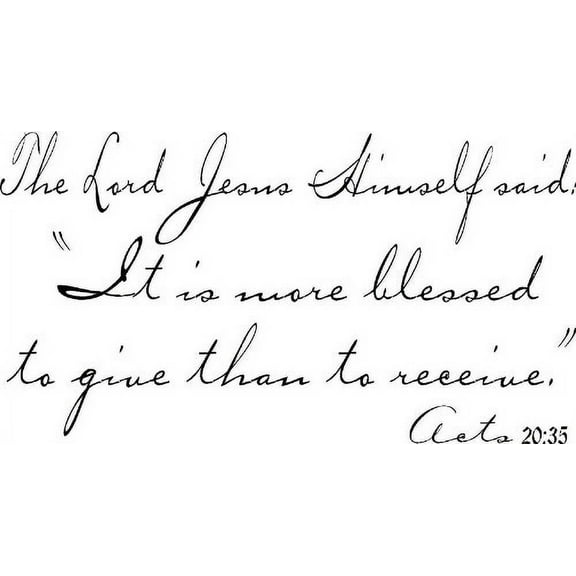 The Lord Jesus Himself said:
"It is more blessed
to give than to receive."
Acts 20:35